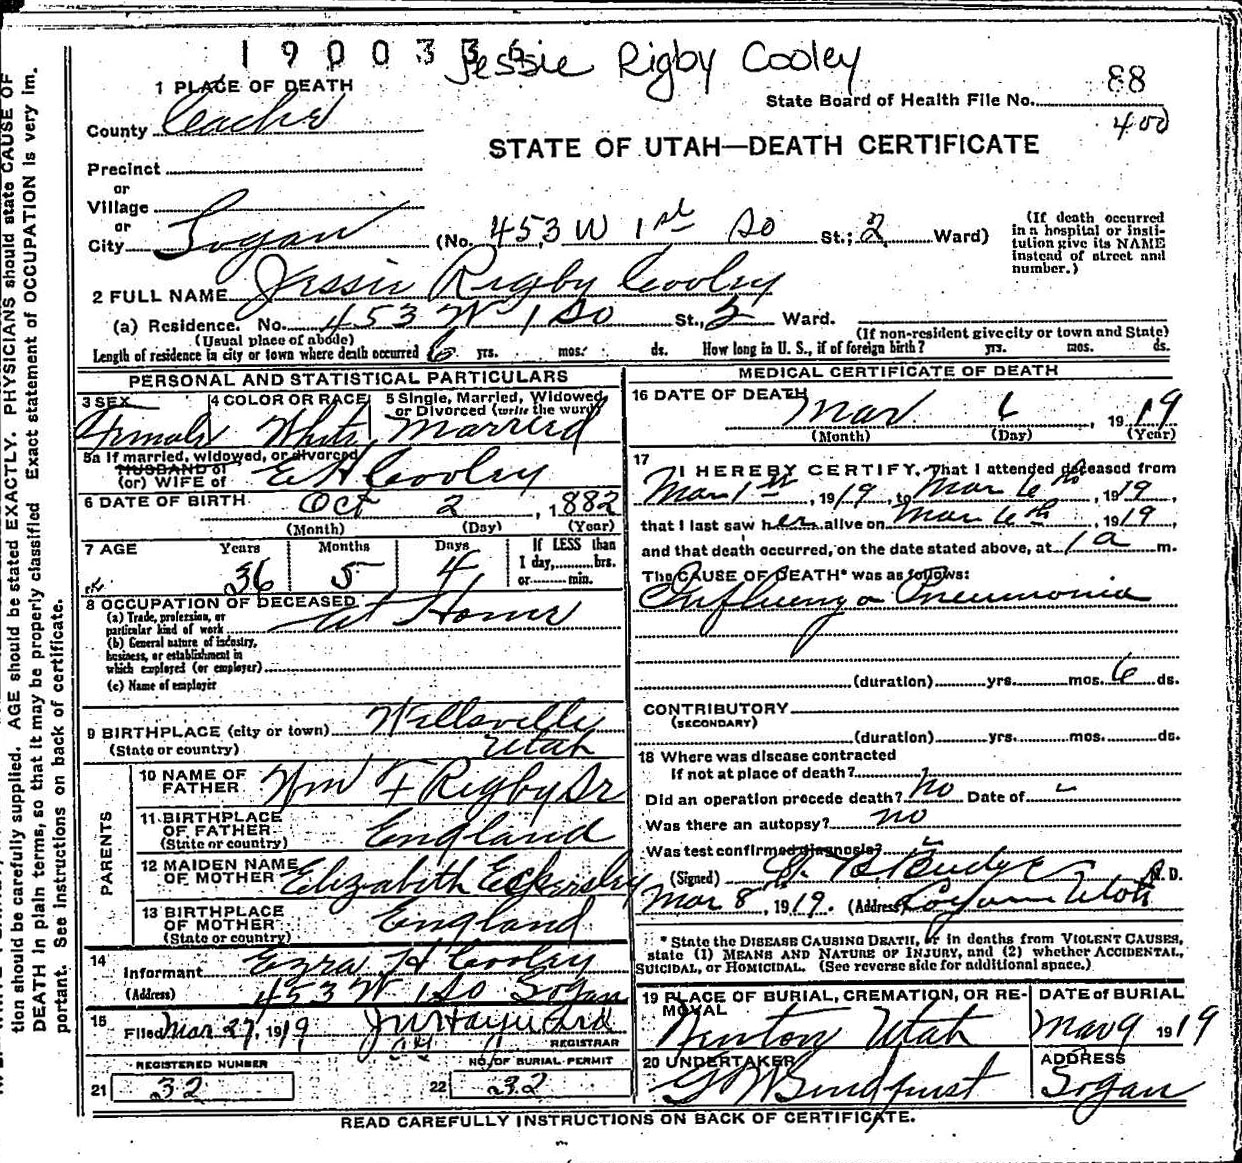 1900336
Jessie Rigby Cooley
88
400
1 PLACE OF DEATH
State Board of Health File No.
County Cache
STATE OF UTAH—DEATH CERTIFICATE
Precinct
or
Village
or
City Logan (No. 453 W 1st So St.; 2 Ward)
(If death occurred in a hospital or institution give its NAME instead of street and number.)
2 FULL NAME Jessie Rigby Cooley
(a) Residence. No. 453 W 1 So St., 2 Ward.
(Usual place of abode)
(If non-resident give city or town and State)
Length of residence in city or town where death occurred 6 yrs. mos. ds. How long in U. S., if of foreign birth? yrs. mos. ds.
PERSONAL AND STATISTICAL PARTICULARS
3 SEX
Female
4 COLOR OR RACE
White
5 Single, Married, Widowed
or Divorced (write the word)
Married
5a If married, widowed, or divorced
HUSBAND of
(or) WIFE of E H Cooley
6 DATE OF BIRTH Oct 2, 1882
(Month) (Day) (Year)
7 AGE
Years Months Days
36 5 4
If LESS than
1 day,........hrs.
or........min.
8 OCCUPATION OF DECEASED
At Home
(a) Trade, profession, or
particular kind of work
(b) General nature of industry,
business, or establishment in
which employed (or employer)
(c) Name of employer
9 BIRTHPLACE (city or town) Wellsville
(State or country) Utah
PARENTS
10 NAME OF
FATHER Wm F Rigby Sr
11 BIRTHPLACE
OF FATHER England
(State or country)
12 MAIDEN NAME
OF MOTHER Elizabeth Eckersley
13 BIRTHPLACE
OF MOTHER England
(State or country)
14
Informant Ezra H Cooley
(Address) 453 W 1 So Logan
15
Filed Mar 27, 1919 J W Hayward
REGISTRAR
REGISTERED NUMBER
21 32
NO. OF BURIAL PERMIT
22 232
MEDICAL CERTIFICATE OF DEATH
16 DATE OF DEATH Mar 6, 1919
(Month) (Day) (Year)
17
I HEREBY CERTIFY, That I attended deceased from
Mar 1st, 1919, to Mar 6th, 1919,
that I last saw her alive on Mar 6th, 1919,
and that death occurred, on the date stated above, at 1 a m.
The CAUSE OF DEATH* was as follows:
Influenza Pneumonia
(duration) yrs. mos. 6 ds.
CONTRIBUTORY
(SECONDARY)
(duration) yrs. mos. ds.
18 Where was disease contracted
If not at place of death?
Did an operation precede death? No Date of
Was there an autopsy? no
Was test confirmed diagnosis?
(Signed) Budge M. D.
Mar 8, 1919. (Address) Logan Utah
* State the DISEASE CAUSING DEATH, or in deaths from VIOLENT CAUSES,
state (1) MEANS AND NATURE OF INJURY, and (2) whether ACCIDENTAL,
SUICIDAL, or HOMICIDAL. (See reverse side for additional space.)
19 PLACE OF BURIAL, CREMATION, OR RE-
MOVAL
Newton Utah
DATE of BURIAL
Mar 9 1919
20 UNDERTAKER
ADDRESS
Logan
READ CAREFULLY INSTRUCTIONS ON BACK OF CERTIFICATE.
tion should be carefully supplied. AGE should be stated EXACTLY. PHYSICIANS should state CAUSE OF
DEATH in plain terms, so that it may be properly classified. Exact statement of OCCUPATION is very im-
portant. See Instructions on back of certificate.